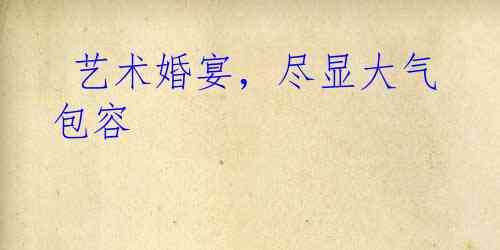 艺术婚宴，尽显大气
包容